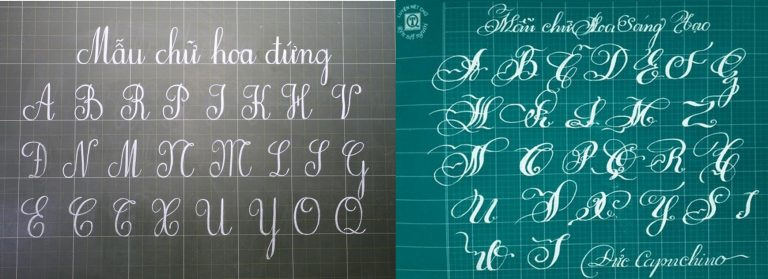 Mẫu chữ hoa đứng
A B R P I K H V
Đ N M N M L S G
E C T X U Y O Q
LUYỆN VIẾT CHỮ
Mẫu chữ Hoa Sáng Tạo
A B C D E F G
H K L M Z
N O P Q R
U V X Y S I
W T Đức Capuchino